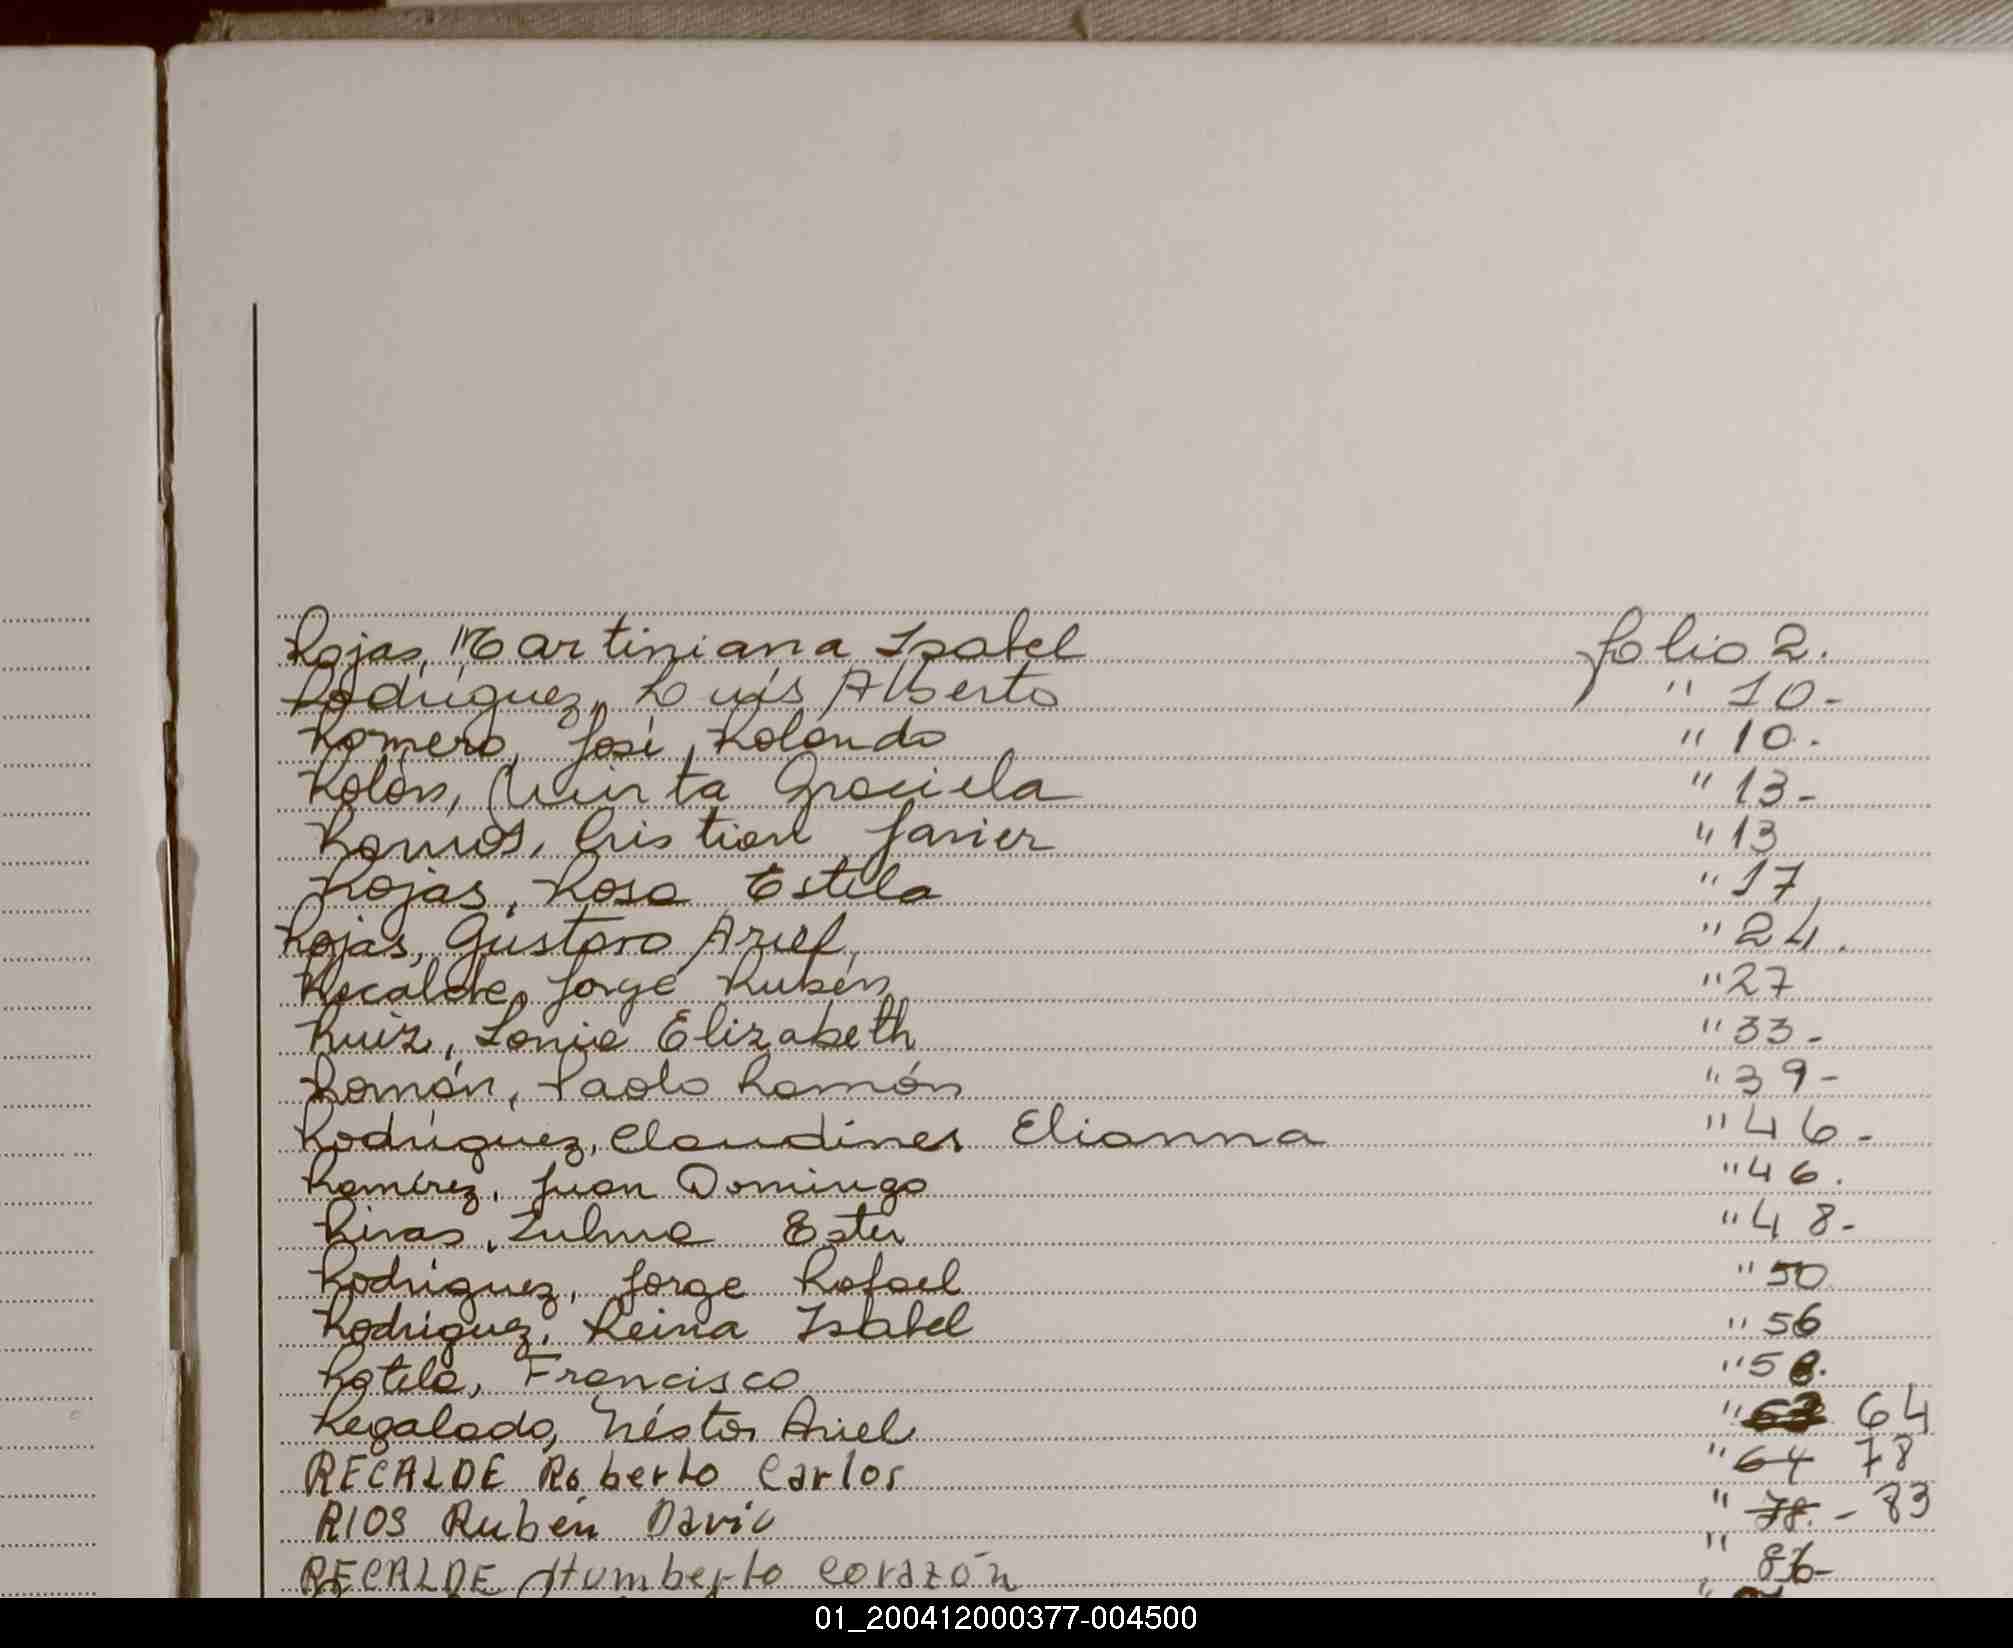 Rojas, Martiniana Isabel folio 2.
Rodríguez, Luís Alberto " 10-
Romero, José Rolando " 10.
Rolón, Graciela " 13-
Ramos, Cristian Javier " 13
Rojas, Rosa Estela " 17
Rojas, Gustavo Ariel " 24.
Recalde, Jorge Rubén " 27
Ruiz, Sonia Elizabeth " 33-
Román, Paolo Ramón " 39-
Rodríguez, Claudines Elianna " 46-
Ramírez, Juan Domingo " 46.
Rivas, Zulma Ester " 48-
Rodriguez, Jorge Rafael " 50
Rodriguez, Reina Isabel " 56
Rotela, Francisco " 58.
Regalado, Néstor Ariel " 63 64
RECALDE Roberto Carlos " 64 78
RIOS Rubén David " 78. - 83
RECALDE Humberto Corazón " 86-
01_200412000377-004500